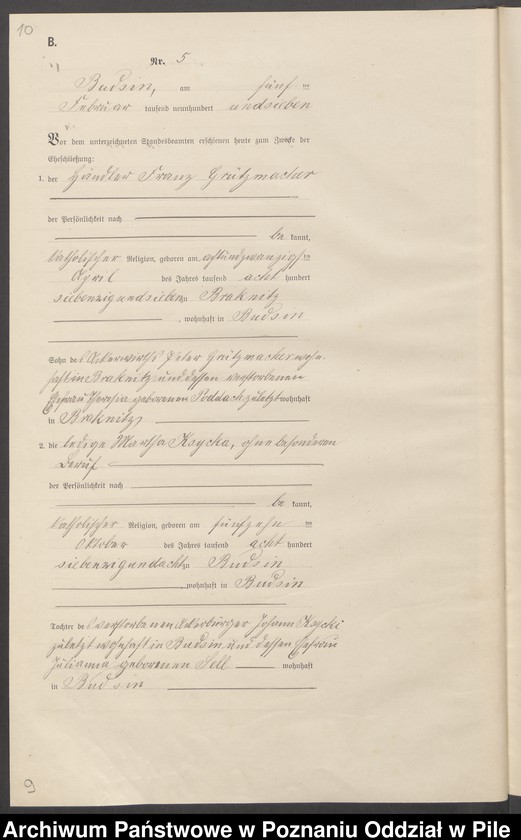 10
B.
Nr. 5
Budsin, am fünf ten
Februar tausend neunhundert undsieben
Vor dem unterzeichneten Standesbeamten erschienen heute zum Zwecke der
Eheschließung:
1. der Händler Franz Grützmacher
der Persönlichkeit nach
be kannt,
katholischer Religion, geboren am achtundzwanzigsten
April des Jahres tausend acht hundert
siebenzigundsieben zu Braknitz
, wohnhaft in Budsin
Sohn des Ackerwirths Peter Grützmacher wohn-
haft in Braknitz und dessen verstorbenen
Ehefrau geborenen zuletzt wohnhaft
in Braknitz
2. die ledige Martha Ksycka, ohne besonderen
Beruf
der Persönlichkeit nach
be kannt,
katholischer Religion, geboren am fünfzehn ten
Oktober des Jahres tausend acht hundert
siebenzigundacht zu Budsin
, wohnhaft in Budsin
Tochter des verstorbenen Ackerbürger Johann Ksycki
zuletzt wohnhaft in Budsin und dessen Ehefrau
Julianna geborenen Sell wohnhaft
in Budsin
9
Archiwum Państwowe w Poznaniu Oddział w Pile